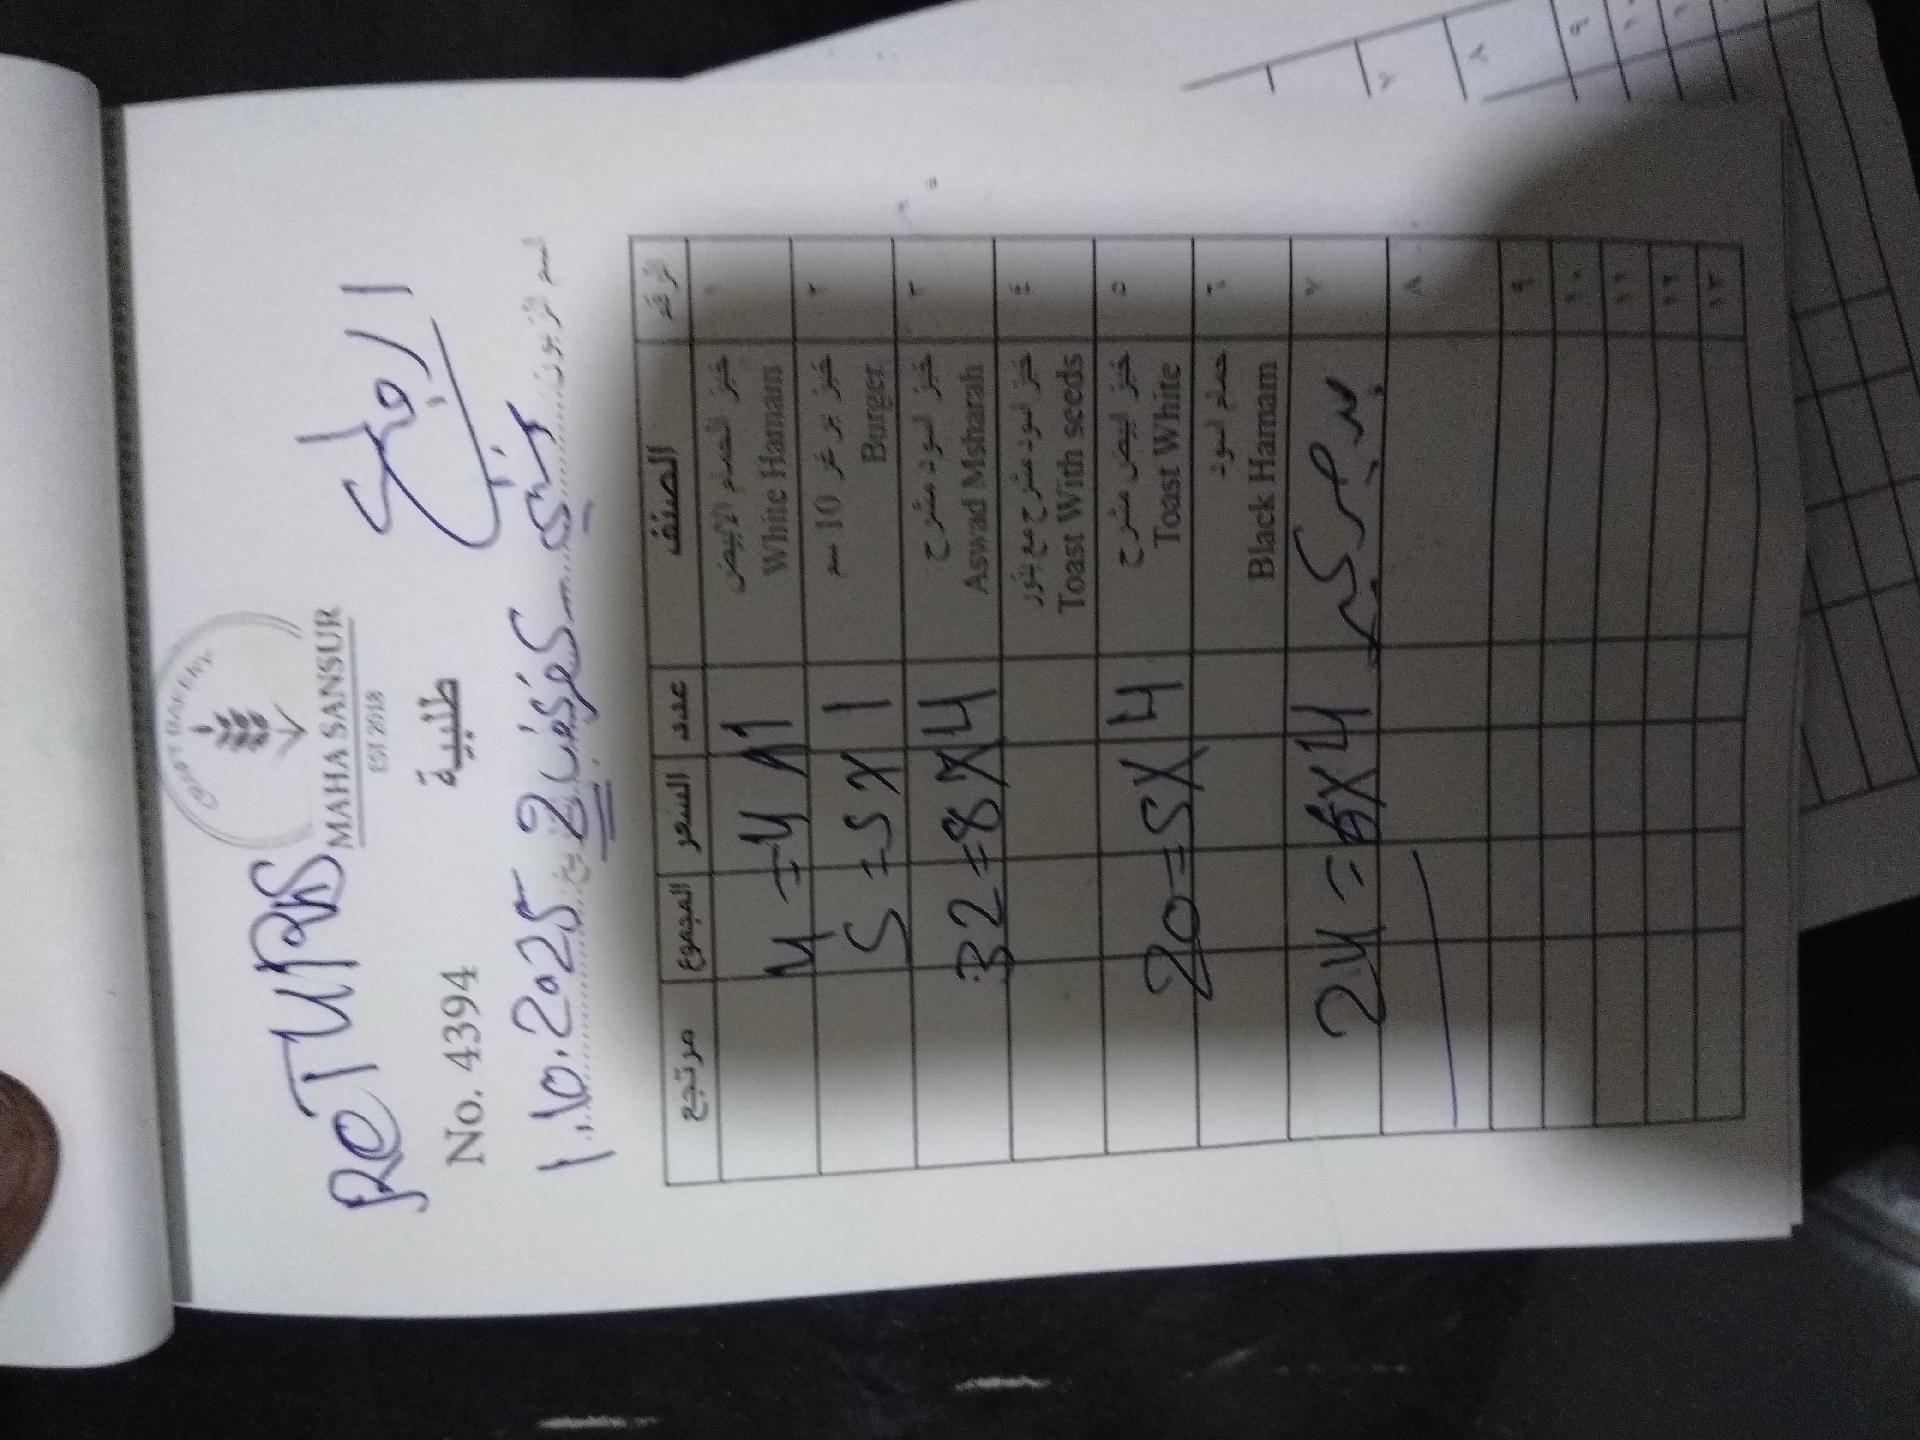 CRAFT BAKERY
MAHA SANSUR
EST 2018
RETURNS
طلبية
No. 4394
1.10.2025
اسم الزبون
الرقم الصنف عدد السعر المجموع مرتجع
١ خبز الحمام الأبيض
White Hamam 1 X 4 = 4
٢ خبز برغر 10 سم
Burger 1 X 5 = 5
٣ خبز اسود مشرح
Aswad Msharah 4 X 8 = 32
٤ خبز اسود مشرح مع بذور
Toast With seeds
٥ خبز ابيض مشرح
Toast White 4 X 5 = 20
٦ حمام اسود
Black Hamam
٧ 4 X 6 = 24
٨
٩
١٠
١١
١٢
١٣